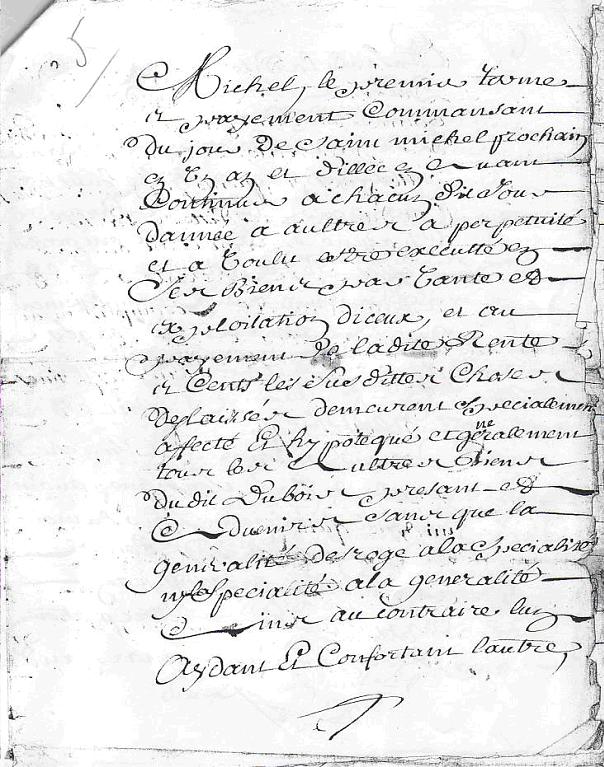 5
Michel, le premie terme
et payement Commansant
Du jour De saint michel prochain
en Un an et dillec en avant
Continue a chacun dit Jour
dannee a aultres a perpetuité
et a Voulu estre executté en
Ses Biens par Vante et
exploitation diceux, et au
payement De ladite Rente
et Cents les Susdittes Choses
Delaissés demeurent specialement
affecté Et hypotequé et generalement
tous les aultres Biens
Du dit Dubois presant et
Advenirs sans que la
generalité desroge a la specialité
ny la specialité a la generalité
Ains au contraire lun
Aydant Et Confortant lautre,